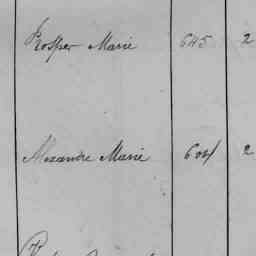 Prosper Marie 645 2
Alexandre Marie 604 2